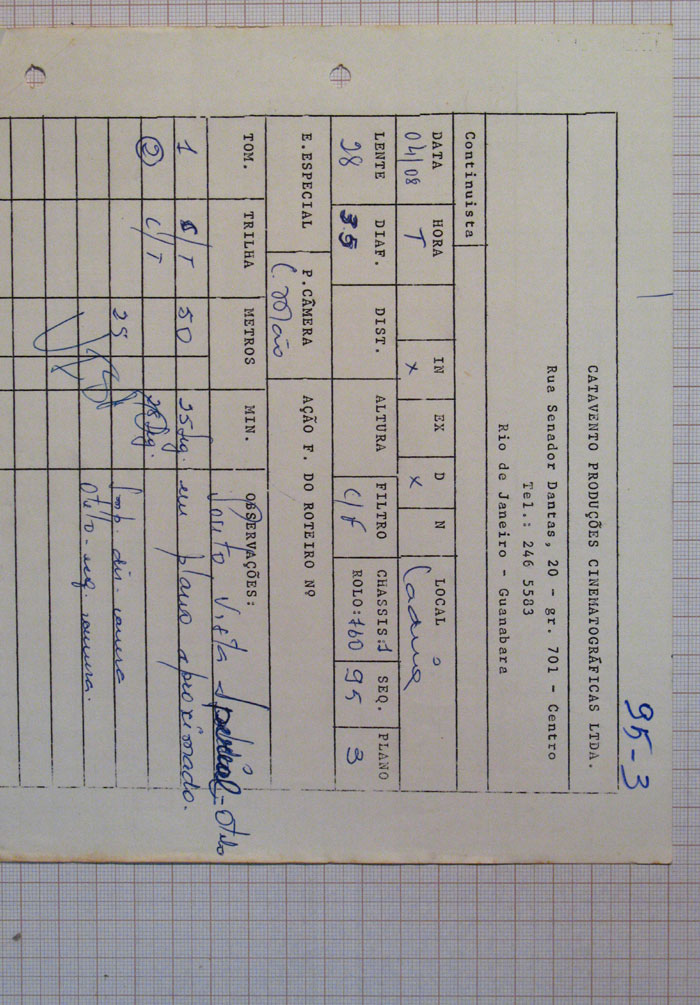 95-3
CATAVENTO PRODUÇÕES CINEMATOGRÁFICAS LTDA.
Rua Senador Dantas, 20 - gr. 701 - Centro
Tel.: 246 5583
Rio de Janeiro - Guanabara
Continuista
DATA HORA IN EX D N LOCAL
04/08 T x x
LENTE DIAF. DIST. ALTURA FILTRO CHASSIS:1 SEQ. PLANO
28 3.5 C/F ROLO:760 95 3
E.ESPECIAL P.CÂMERA AÇÃO F. DO ROTEIRO Nº
C. Mão
TOM. TRILHA METROS MIN. OBSERVAÇÕES:
Ponto Vista - Otelo
1 C/T 50 25 seg. em plano aproximado.
2 C/T 28 seg.
25 Imp. dir. camera
Otelo - esq. camera.